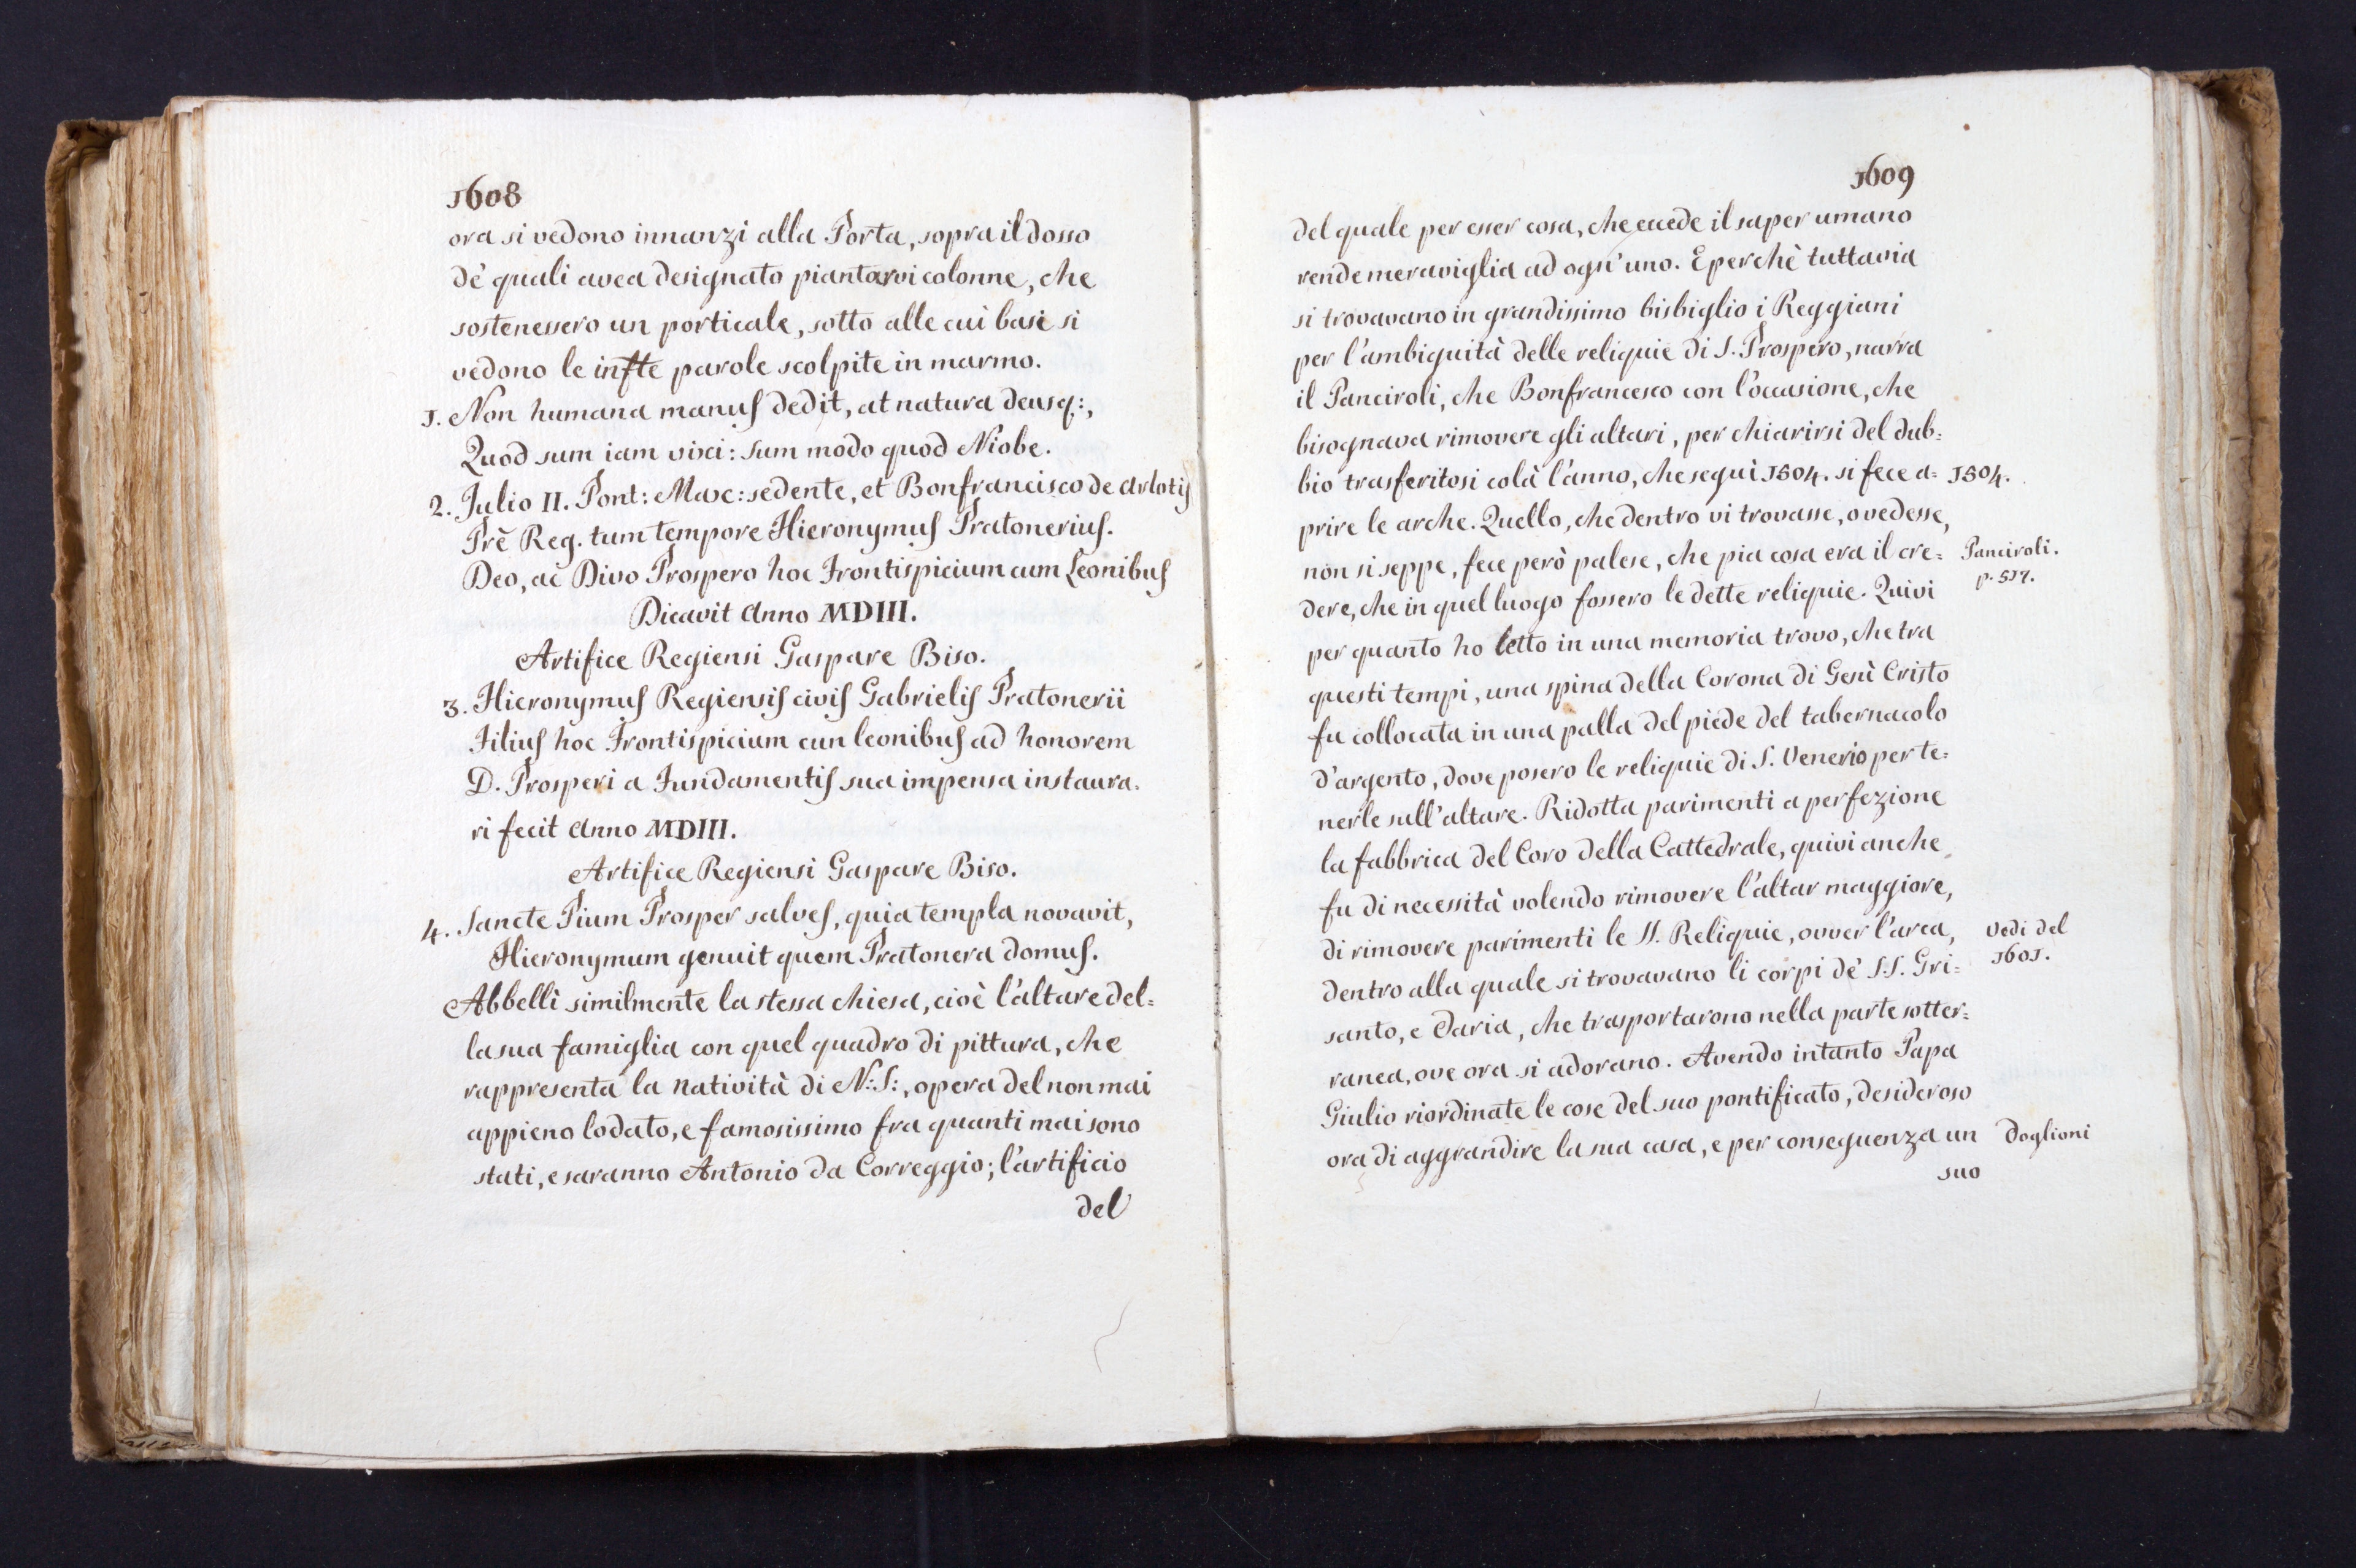 1608
ora si vedono innanzi alla Porta, sopra il dosso
de' quali avea designato piantarvi colonne, che
sostenessero un porticale, sotto alle cui basi si
vedono le infte parole scolpite in marmo.
1. Non humana manus dedit, at natura deusq:,
Quod sum iam vixi: sum modo quod Niobe.
2. Julio II. Pont: Max: sedente, et Bonfrancisco de Arlotis
Prẽ Reg. tum tempore Hieronymus Pratonerius.
Deo, ac Divo Prospero hoc Frontispicium cum Leonibus
Dicavit Anno MDIII.
Artifice Regiensi Gaspare Biso.
3. Hieronymus Regiensis civis Gabrielis Pratonerii
Filius hoc Frontispicium cun leonibus ad honorem
D. Prosperi a Fundamentis sua impensa instaura.
ri fecit Anno MDIII.
Artifice Regiensi Gaspare Biso.
4. Sancte Pium Prosper salves, quia templa novavit,
Hieronymum genuit quem Pratonera domus.
Abbellì similmente la stessa chiesa, cioè l'altare del=
la sua famiglia con quel quadro di pittura, che
rappresenta la natività di N: S:, opera del non mai
appieno lodato, e famosissimo fra quanti mai sono
stati, e saranno Antonio da Correggio; l'artificio
del
1609
del quale per esser cosa, che eccede il saper umano
rende meraviglia ad ogn'uno. E perchè tuttavia
si trovavano in grandissimo bisbiglio i Reggiani
per l'ambiguità delle reliquie di S. Prospero, narra
il Panciroli, che Bonfrancesco con l'occasione, che
bisognava rimovere gli altari, per chiarirsi del dub=
bio trasferitosi colà l'anno, che seguì 1504. si fece a= 1504.
prire le arche. Quello, che dentro vi trovasse, o vedesse,
non si seppe, fece però palese, che pia cosa era il cre= Panciroli.
p. 517.
dere, che in quel luogo fossero le dette reliquie. Quivi
per quanto ho letto in una memoria trovo, che tra
questi tempi, una spina della Corona di Gesù Cristo
fu collocata in una palla del piede del tabernacolo
d'argento, dove posero le reliquie di S. Venerio per te=
nerle sull'altare. Ridotta parimenti a perfezione
la fabbrica del Coro della Cattedrale, quivi anche
fu di necessità volendo rimovere l'altar maggiore,
di rimovere parimenti le SS. Reliquie, ovver l'arca, Vedi del
1601.
dentro alla quale si trovavano li corpi de' S.S. Gri=
santo, e Daria, che trasportarono nella parte sotter=
ranea, ove ora si adorano. Avendo intanto Papa
Giulio riordinate le cose del suo pontificato, desideroso
ora di aggrandire la sua casa, e per conseguenza un Doglioni
suo